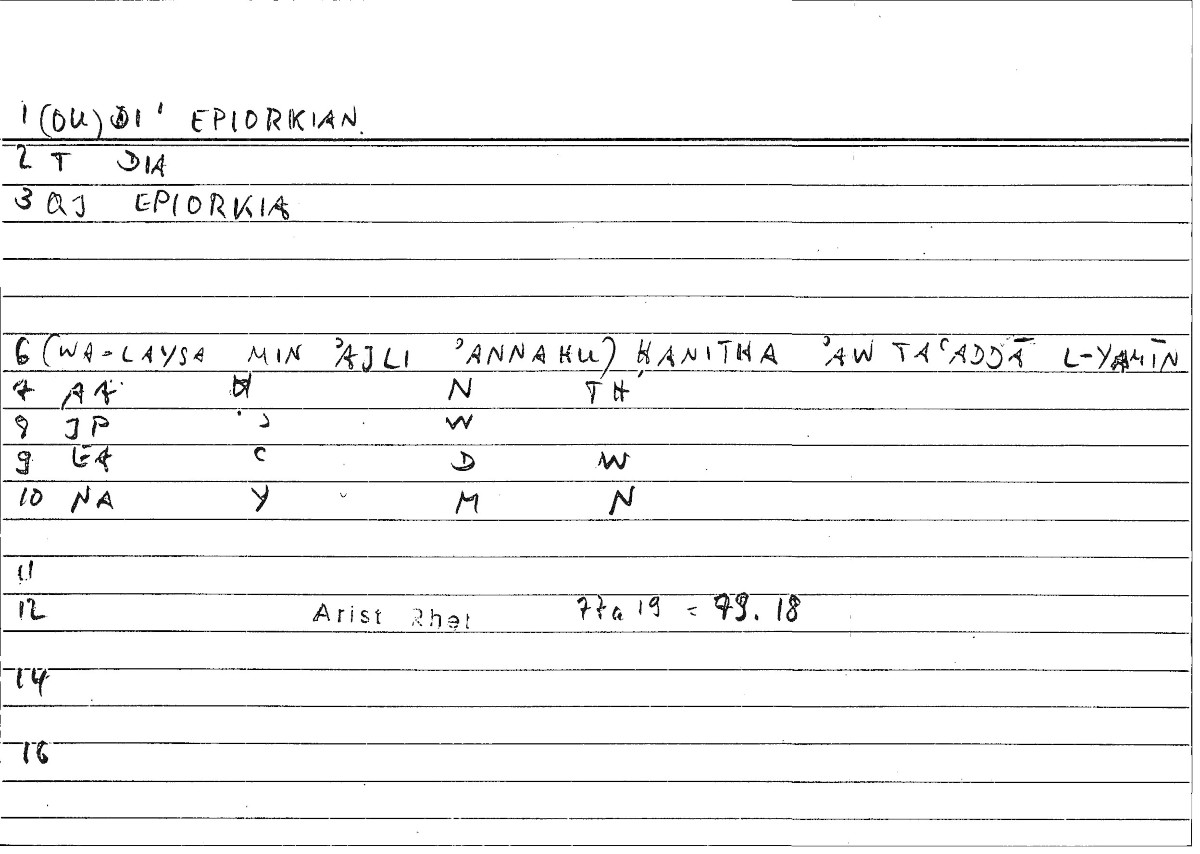 1 (OU) DI' EPIORKIAN.
2 T DIA
3 QJ EPIORKIA
6 (WA-LAYSA MIN ʾAJLI ʾANNAHU) ḤANITHA ʾAW TAʿADDĀ L-YAMĪN
7 AA Ḥ N TH
8 JP J W
9 EA ʿ D W
10 NA Y M N
11
12 Arist Rhet 77a 19 = 79. 18
14
16